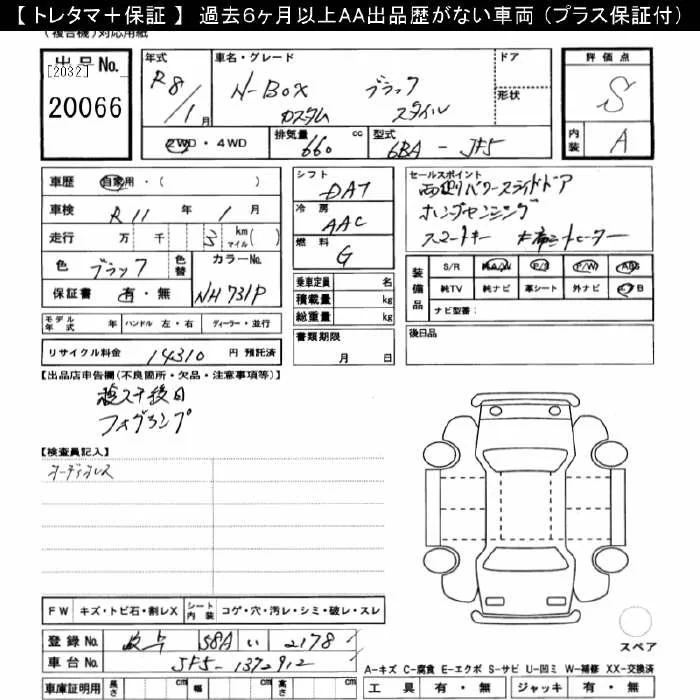 【 トレタマ＋保証 】 過去６ヶ月以上ＡＡ出品歴がない車両（プラス保証付）
(複合機)対応用紙
出品No.
[2032]
20066
年式
R8/1月
車名・グレード
N-BOX ブラック
カスタム スタイル
ドア
形状
2WD・4WD
排気量 660 cc
型式 6BA - JF5
評価点
S
内装 A
車歴 自家用・( )
車検 R11年 1月
走行 万 千 3 km マイル( )
色 ブラック 色替
カラーNo. NH731P
保証書 有・無
シフト DAT
冷房 AAC
燃料 G
乗車定員 名
積載量 kg
総重量 kg
セールスポイント
両側パワースライドドア
ホンダセンシング
スマートキー
装備品
S/R A/W P/S P/W ABS
純TV 純ナビ 革シート 外ナビ エアB
ナビ型番：
モデル年式 年 ハンドル 左・右 ディーラー・並行
リサイクル料金 14310 円 預託済
書類期限 月 日
後日品
【出品店申告欄(不良箇所・欠品・注意事項等)】
後日
フォグランプ
【検査員記入】
オーディオレス
FW キズ・トビ石・割レX シート内装 コゲ・穴・汚レ・シミ・破レ・スレ
登録No. 岐阜 58A い 2178
車台No. JF5-1372912
車庫証明用 長さ cm 幅 cm 高さ cm
スペア
A-キズ C-腐食 E-エクボ S-サビ U-凹ミ W-補修 XX-交換済
工具 有・無 ジャッキ 有・無